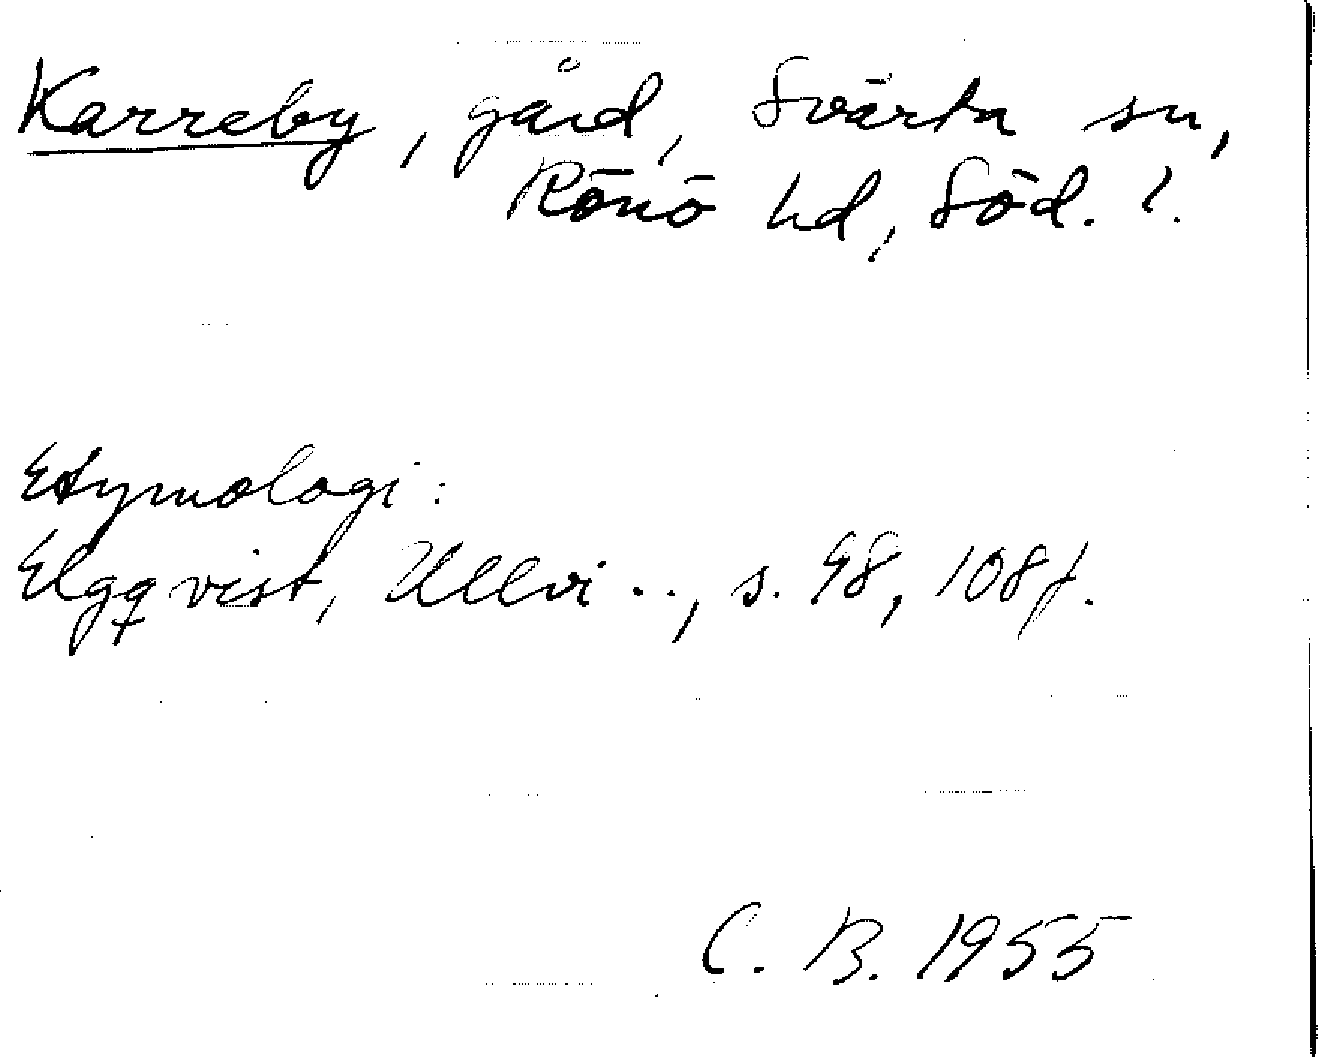 Karreby, gård, Svärta sn,
Rönö hd, Söd. l.
Etymologi:
Elgqvist, Ullvi .., s. 98, 108 f.
C. B. 1955